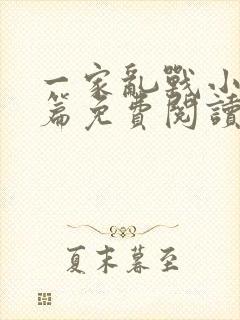 一家亂戰小
篇免費閱讀
夏末暮至